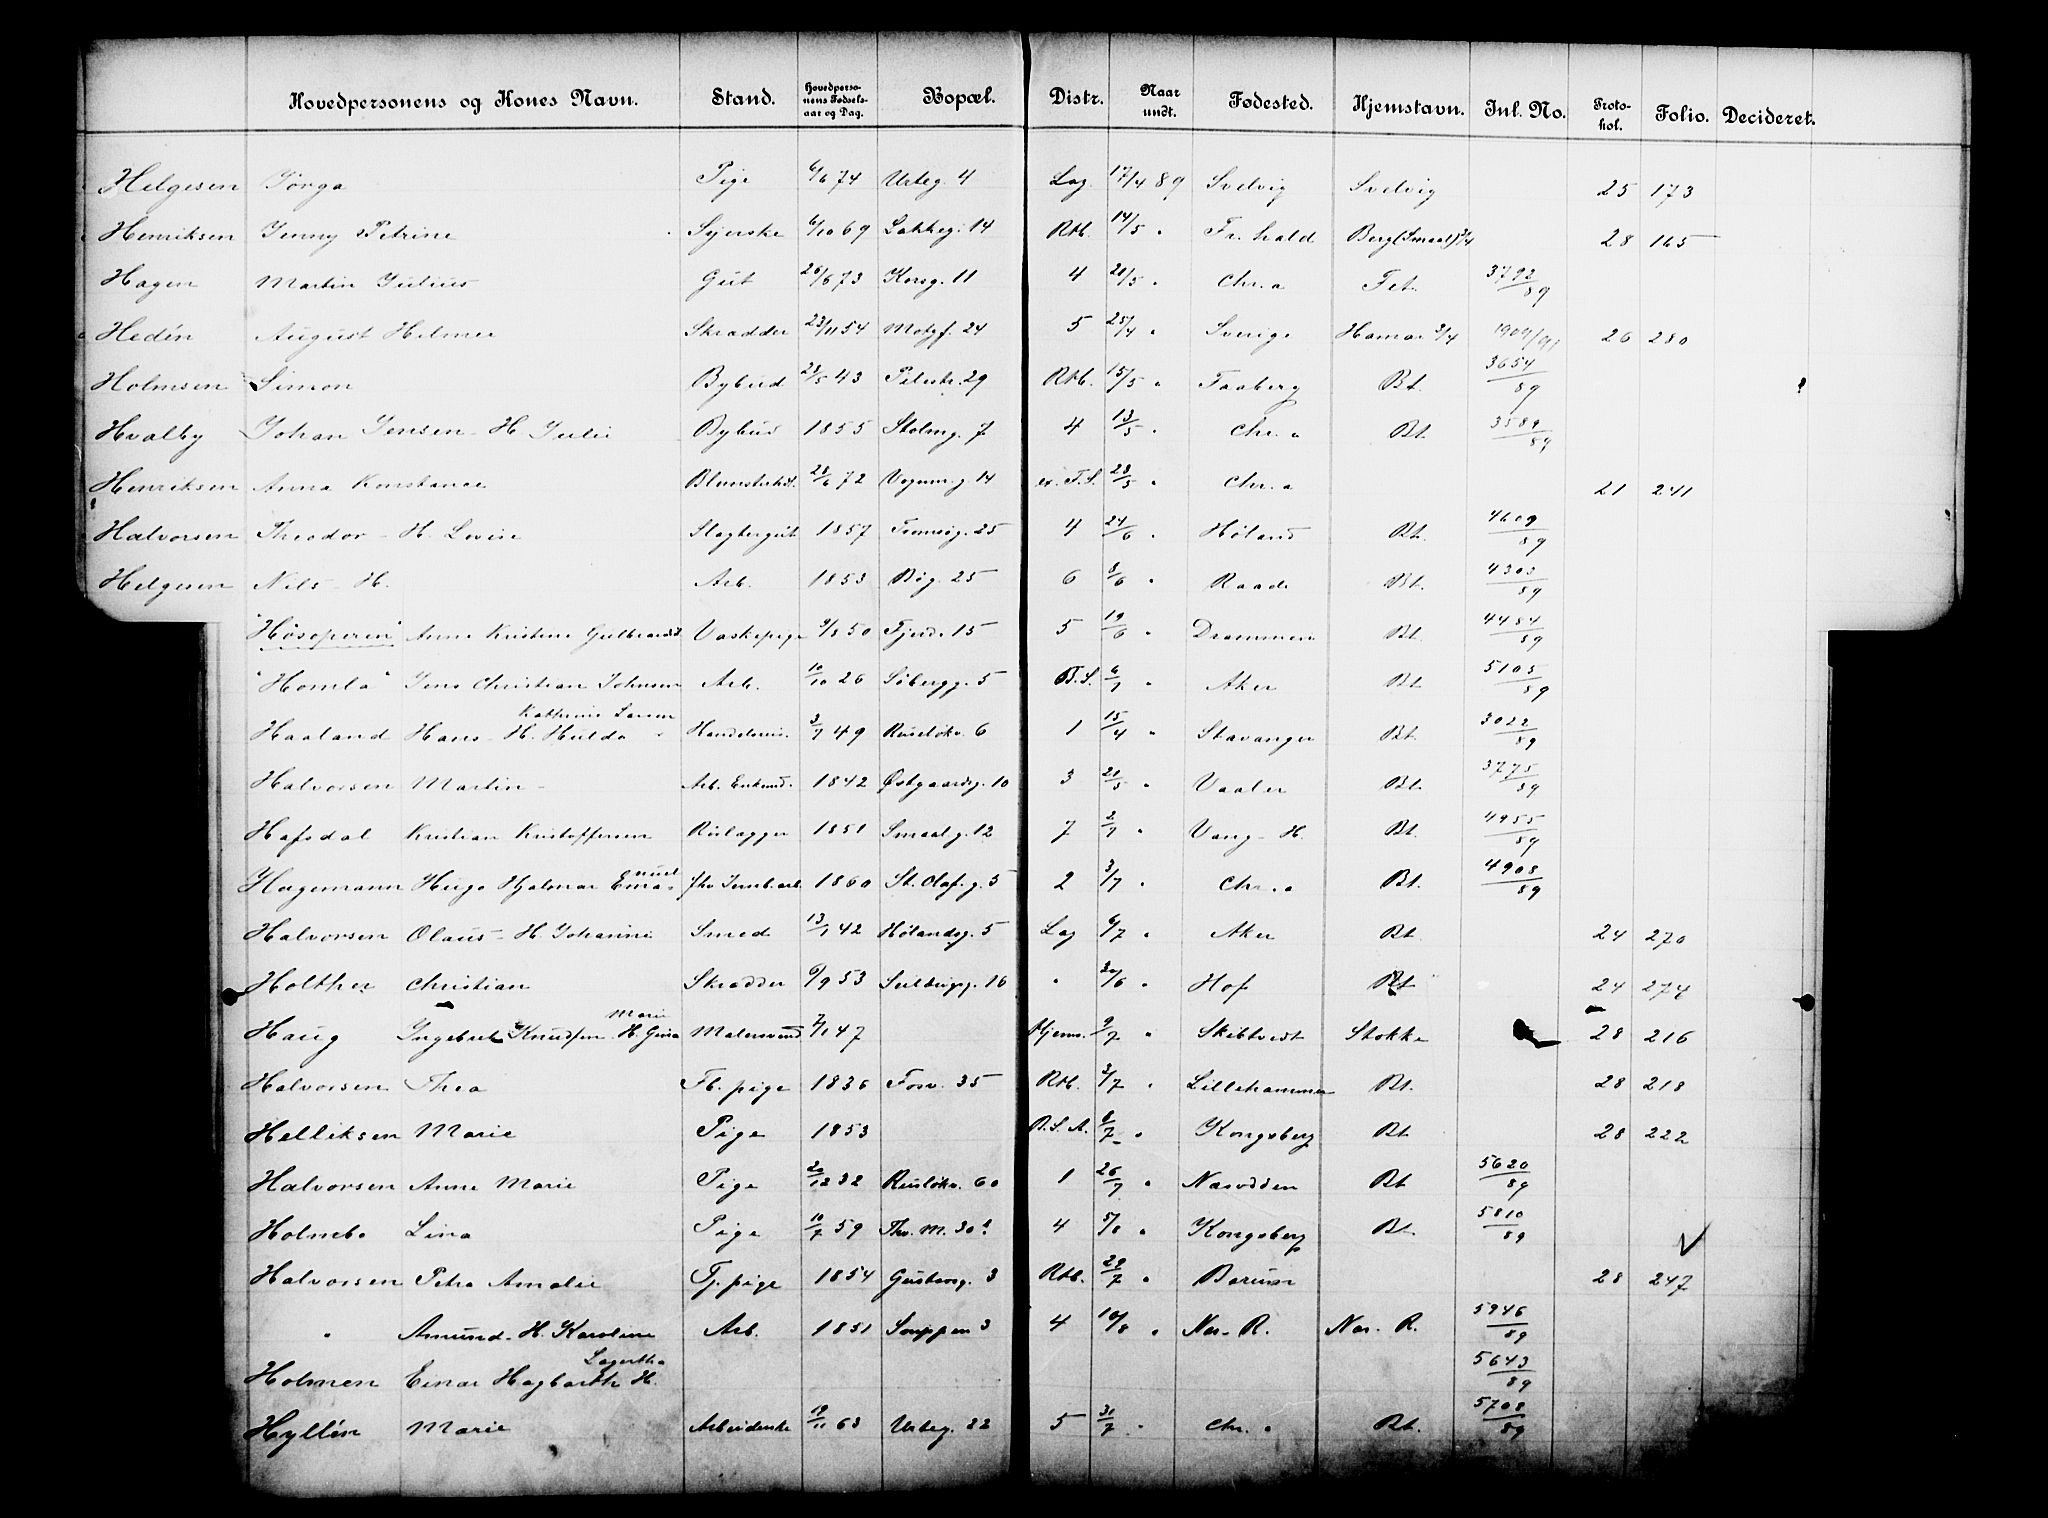 Hovedpersonens og Kones Navn. Stand. Hovedpersonens Fødselsaar og Dag. Bopæl. Distr. Naar undt. Fødested. Hjemstavn. Inl. No. Protokol. Folio. Decideret.
Helgesen Jörga Pige 6/6 74 Urteg. 4 Lag. 17/4 89 Svelvig Svelvig 25 173
Henriksen Jenny Petrine Syerske 6/10 69 Lakkeg. 14 Rtb. 14/5 " Fr. hald Berg (Smaal) 3/4 28 165
Hagen Martin Julius Gut 26/6 73 Korsg. 11 4 21/5 " Chr.a Fet. 3792/89
Hedén August Helmer Skradder 23/11 54 Motzf. 24 5 25/4 " Sverige Hamar 3/4 1909/91 26 280
Holmsen Simon Bybud 23/5 43 Pilestr. 29 Rtb. 15/5 " Faaberg Bt. 3654/89
Hvalby Johan Jensen - H. Julie Bybud 1855 Stolmg. 7 4 13/5 " Chr.a Bt. 3589/89
Henriksen Anna Konstance 28/6 72 Vognm.g. 14 28/5 " Chr.a 21 241
Halvorsen Theodor - H. Lovise Slagtergut 1857 Tromsøg. 25 4 24/6 " Høland Bt. 4609/89
Helgesen Nils - H. Arb. 1853 Bøg. 25 6 8/6 " Raade Bt. 4303/89
"Høsoperin" Anne Kristine Gulbrandsd. Vaskepige 9/8 50 Fjerd. 15 5 19/6 " Drammen Bt. 4484/89
"Homla" Jens Christian Johnsen Arb. 10/10 26 Söbergg. 5 B.S. 6/7 " Aker Bt 5105/89
Kathrine Larsen
Haaland Hans - H. Hulda Handelsreis. 3/7 49 Ruselökv. 6 1 15/4 " Stavanger Bt. 3022/89
Halvorsen Martin - Arb. Enkemd. 1842 Østgaardsg. 10 3 21/5 " Vaaler Bt. 3775/89
Hafsdal Kristian Kristoffersen Rörlægger 1851 Smaalg. 12 7 2/7 " Vang - H. Bt. 4955/89
Hagemann Hugo Hjalmar 1860 St. Olafs g. 5 2 3/7 " Chr.a Bt. 4908/89
Halvorsen Olaus - H. Johanne Smed 13/1 42 Hølandsg. 5 Lag 6/7 " Aker Bt. 24 270
Holther Christian Skradder 6/9 53 Seildugsg. 16 " 20/6 " Hof Bt 24 274
Marie
Haug Ingebret Knudsen H. Gina Malersvend 7/1 47 Hjems. 9/7 " Skibtvedt Stokke 28 216
Halvorsen Thea Fb. pige 1836 Fosv. 35 Rtb. 3/7 " Lillehammer Bt. 28 218
Helliksen Marie Pige 1853 B.S.A. 8/7 " Kongsberg Bt 28 222
Halvorsen Anne Marie Pige 20/12 32 Ruselökv. 60 1 26/7 " Næsodden Bt 5620/89
Holmbo Lina Pige 10/7 59 Thv. M. 30 4 5/8 " Kongsberg Bt. 5810/89
Halvorsen Petra Amalie Tj. pige 1854 Gustavsg. 3 Rtb. 29/7 " Barum 28 247
" Amund - H. Karoline Arb. 1851 Souppen 3 4 10/8 " Nes - R. Nes. R. 5946/89
Lagertha
Holmen Einar Hagbarth H. 5643/89
Hyllén Marie Arbeiderske 19/11 63 Urteg. 22 5 31/7 " Chr.a Bt. 5708/89